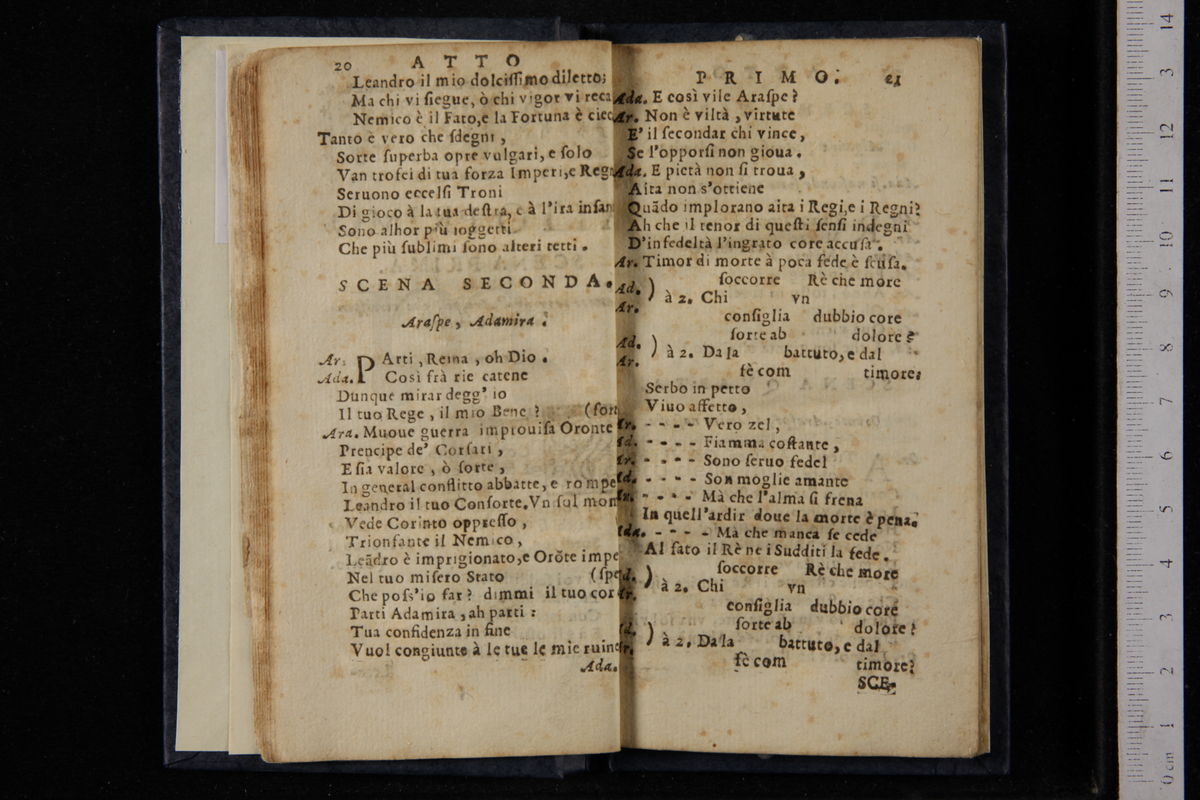 20 ATTO
Leandro il mio dolciſſimo diletto;
Ma chi vi ſiegue, ò chi vigor vi reca
Nemico è il Fato,e la Fortuna è ciec
Tanto è vero che ſdegni ,
Sorte ſuperba opre vulgari, e ſolo
Van trofei di tua forza Imperi,e Regn
Seruono eccelſi Troni
Di gioco à la tua deſtra, e à l'ira inſan
Sono alhor più ſoggetti
Che più ſublimi ſono alteri tetti .
SCENA SECONDA.
Araſpe, Adamira .
Ar. PArti , Reina , oh Dio .
Ada. Così frà rie catene
Dunque mirar degg' io
Il tuo Rege , il mio Bene ? (ſort
Ara. Muoue guerra improuiſa Oronte
Prencipe de' Corſari ,
E ſia valore , ò ſorte ,
In general conflitto abbatte, e rompe
Leandro il tuo Conſorte.Vn ſol mom
Vede Corinto oppreſſo ,
Trionfante il Nemico ,
Leãdro è imprigionato,e Orõte impe
Nel tuo miſero Stato (ſpe
Che poſs'io far ? dimmi il tuo cor
Parti Adamira , ah parti :
Tua confidenza in fine
Vuol congiunte à le tue le mie ruine
Ada.
PRIMO. 21
Ada. E così vile Araſpe ?
Ar. Non è viltà , virtute
E' il ſecondar chi vince ,
Se l'opporſi non gioua .
Ada. E pietà non ſi troua ,
Aita non s'ottiene
Quãdo implorano aita i Regi,e i Regni?
Ah che il tenor di queſti ſenſi indegni
D'infedeltà l'ingrato core accuſa .
Ar. Timor di morte à poca fede è ſcuſa.
Ad. ſoccorre Rè che more
) à 2. Chi vn
Ar. conſiglia dubbio core
Ad. ſorte ab dolore ?
) à 2. Da la battuto, e dal
Ar. fè com timore?
Serbo in petto
Viuo affetto ,
Ar. - - - - Vero zel ,
Ad. - - - - Fiamma coſtante ,
Ar. - - - - Sono ſeruo fedel
Ad. - - - - Son moglie amante
Ar. - - - - Mà che l'alma ſi frena
In quell'ardir doue la morte è pena.
Ada. - - - - Mà che manca ſe cede
Al fato il Rè ne i Sudditi la fede .
Ad. ſoccorre Rè che more
) à 2. Chi vn
Ar. conſiglia dubbio core
Ad. ſorte ab dolore ?
) à 2. Da la battuto, e dal
Ar. fè com timore?
SCE-